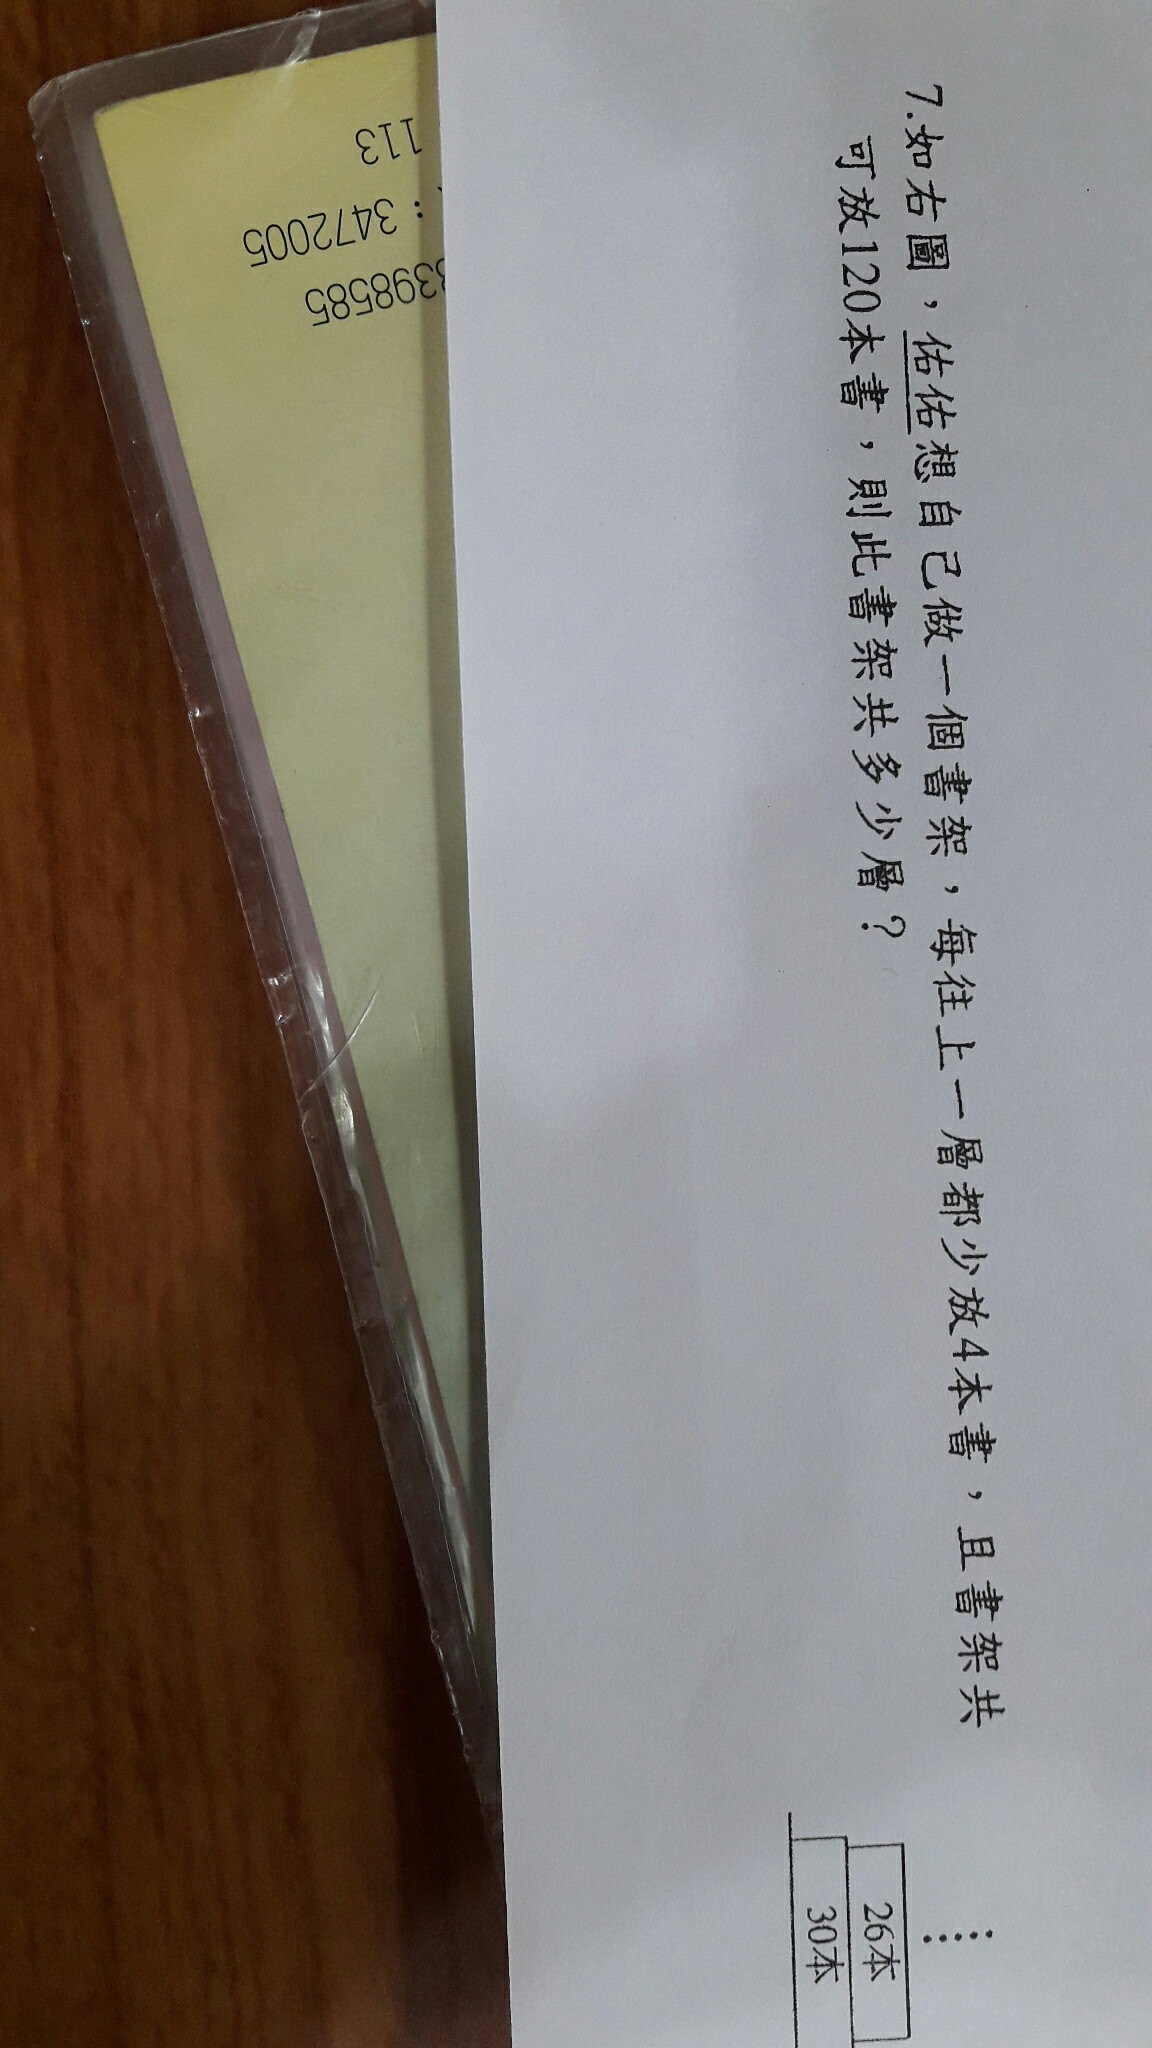 7.如右圖，佑佑想自己做一個書架，每往上一層都少放4本書，且書架共
可放120本書，則此書架共多少層？
⋮
26本
30本
113
：3472005
3398585